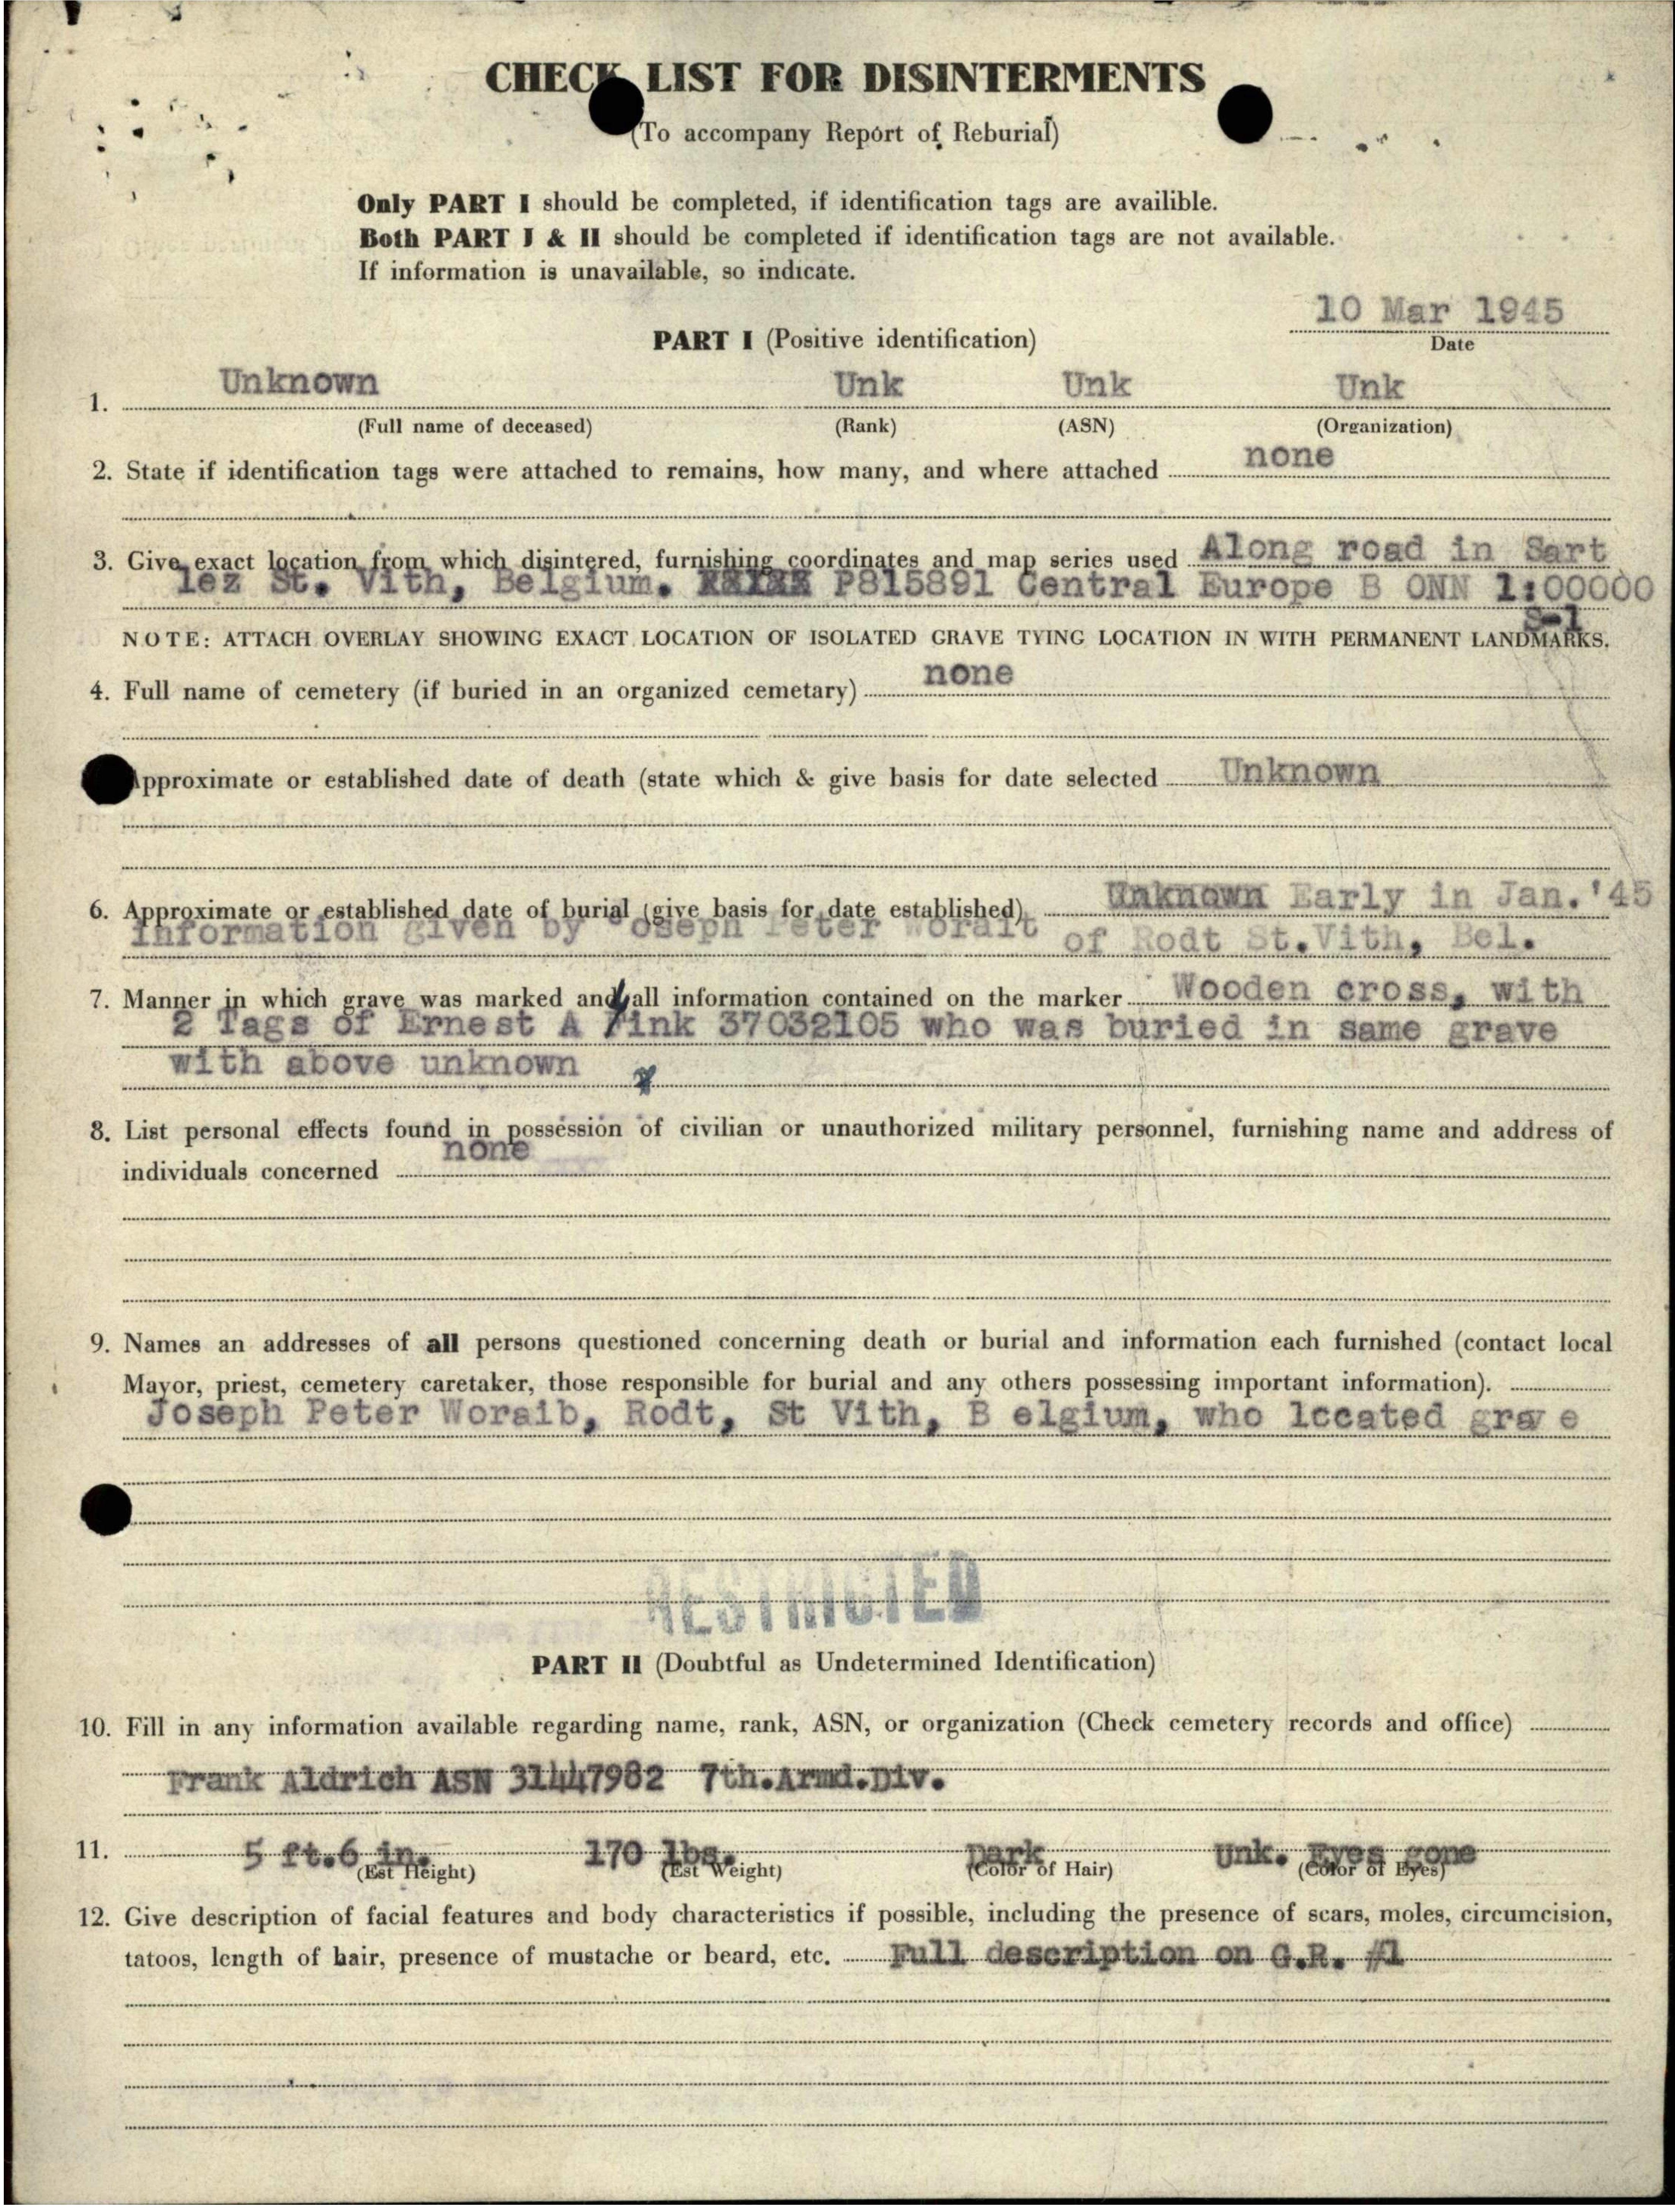 CHECK LIST FOR DISINTERMENTS
(To accompany Report of Reburial)
Only PART I should be completed, if identification tags are availible.
Both PART I & II should be completed if identification tags are not available.
If information is unavailable, so indicate.
10 Mar 1945
PART I (Positive identification)
Date
Unknown Unk Unk Unk
1.
(Full name of deceased) (Rank) (ASN) (Organization)
2. State if identification tags were attached to remains, how many, and where attached none
3. Give exact location from which disintered, furnishing coordinates and map series used Along road in Sart
lez St. Vith, Belgium. P815891 Central Europe B ONN 1:00000
S-1
NOTE: ATTACH OVERLAY SHOWING EXACT LOCATION OF ISOLATED GRAVE TYING LOCATION IN WITH PERMANENT LANDMARKS.
4. Full name of cemetery (if buried in an organized cemetary) none
pproximate or established date of death (state which & give basis for date selected Unknown
6. Approximate or established date of burial (give basis for date established) Unknown Early in Jan. '45
Information given by Joseph Peter Worait of Rodt St.Vith, Bel.
7. Manner in which grave was marked and all information contained on the marker Wooden cross, with
2 Tags of Ernest A Fink 37032105 who was buried in same grave
with above unknown
8. List personal effects found in possession of civilian or unauthorized military personnel, furnishing name and address of
individuals concerned none
9. Names an addresses of all persons questioned concerning death or burial and information each furnished (contact local
Mayor, priest, cemetery caretaker, those responsible for burial and any others possessing important information).
Joseph Peter Woraib, Rodt, St Vith, B elgium, who located grave
RESTRICTED
PART II (Doubtful as Undetermined Identification)
10. Fill in any information available regarding name, rank, ASN, or organization (Check cemetery records and office)
Frank Aldrich ASN 31447982 7th.Armd.Div.
11. 5 ft.6 in. 170 lbs. Dark Unk. Eyes gone
(Est Height) (Est Weight) (Color of Hair) (Color of Eyes)
12. Give description of facial features and body characteristics if possible, including the presence of scars, moles, circumcision,
tatoos, length of hair, presence of mustache or beard, etc. Full description on G.R. #1